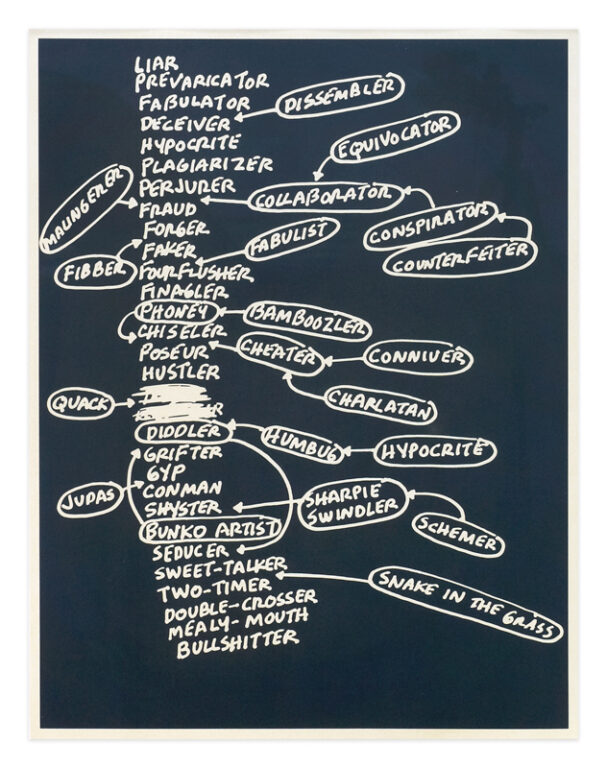 LIAR
PREVARICATOR
FABULATOR
DISSEMBLER
DECEIVER
EQUIVOCATOR
HYPOCRITE
PLAGIARIZER
PERJURER
COLLABORATOR
MALINGERER
FRAUD
CONSPIRATOR
FORGER
FABULIST
FAKER
COUNTERFEITER
FIBBER
FOURFLUSHER
FINAGLER
PHONEY
BAMBOOZLER
CHISELER
POSEUR
CHEATER
CONNIVER
HUSTLER
CHARLATAN
QUACK
DIDDLER
HUMBUG
HYPOCRITE
GRIFTER
GYP
JUDAS
CONMAN
SHARPIE
SHYSTER
SWINDLER
SCHEMER
BUNKO ARTIST
SEDUCER
SWEET-TALKER
TWO-TIMER
SNAKE IN THE GRASS
DOUBLE-CROSSER
MEALY-MOUTH
BULLSHITTER